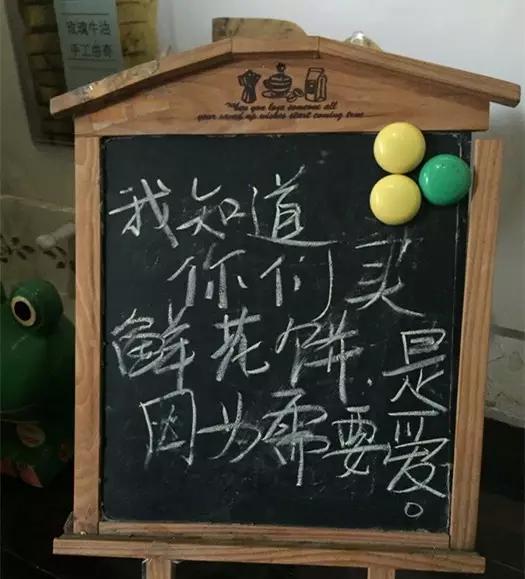 玫瑰牛油
手工曲奇
When you love someone all
your saved-up wishes start coming true
我知道
你们买
鲜花饼.是
因为需要爱。